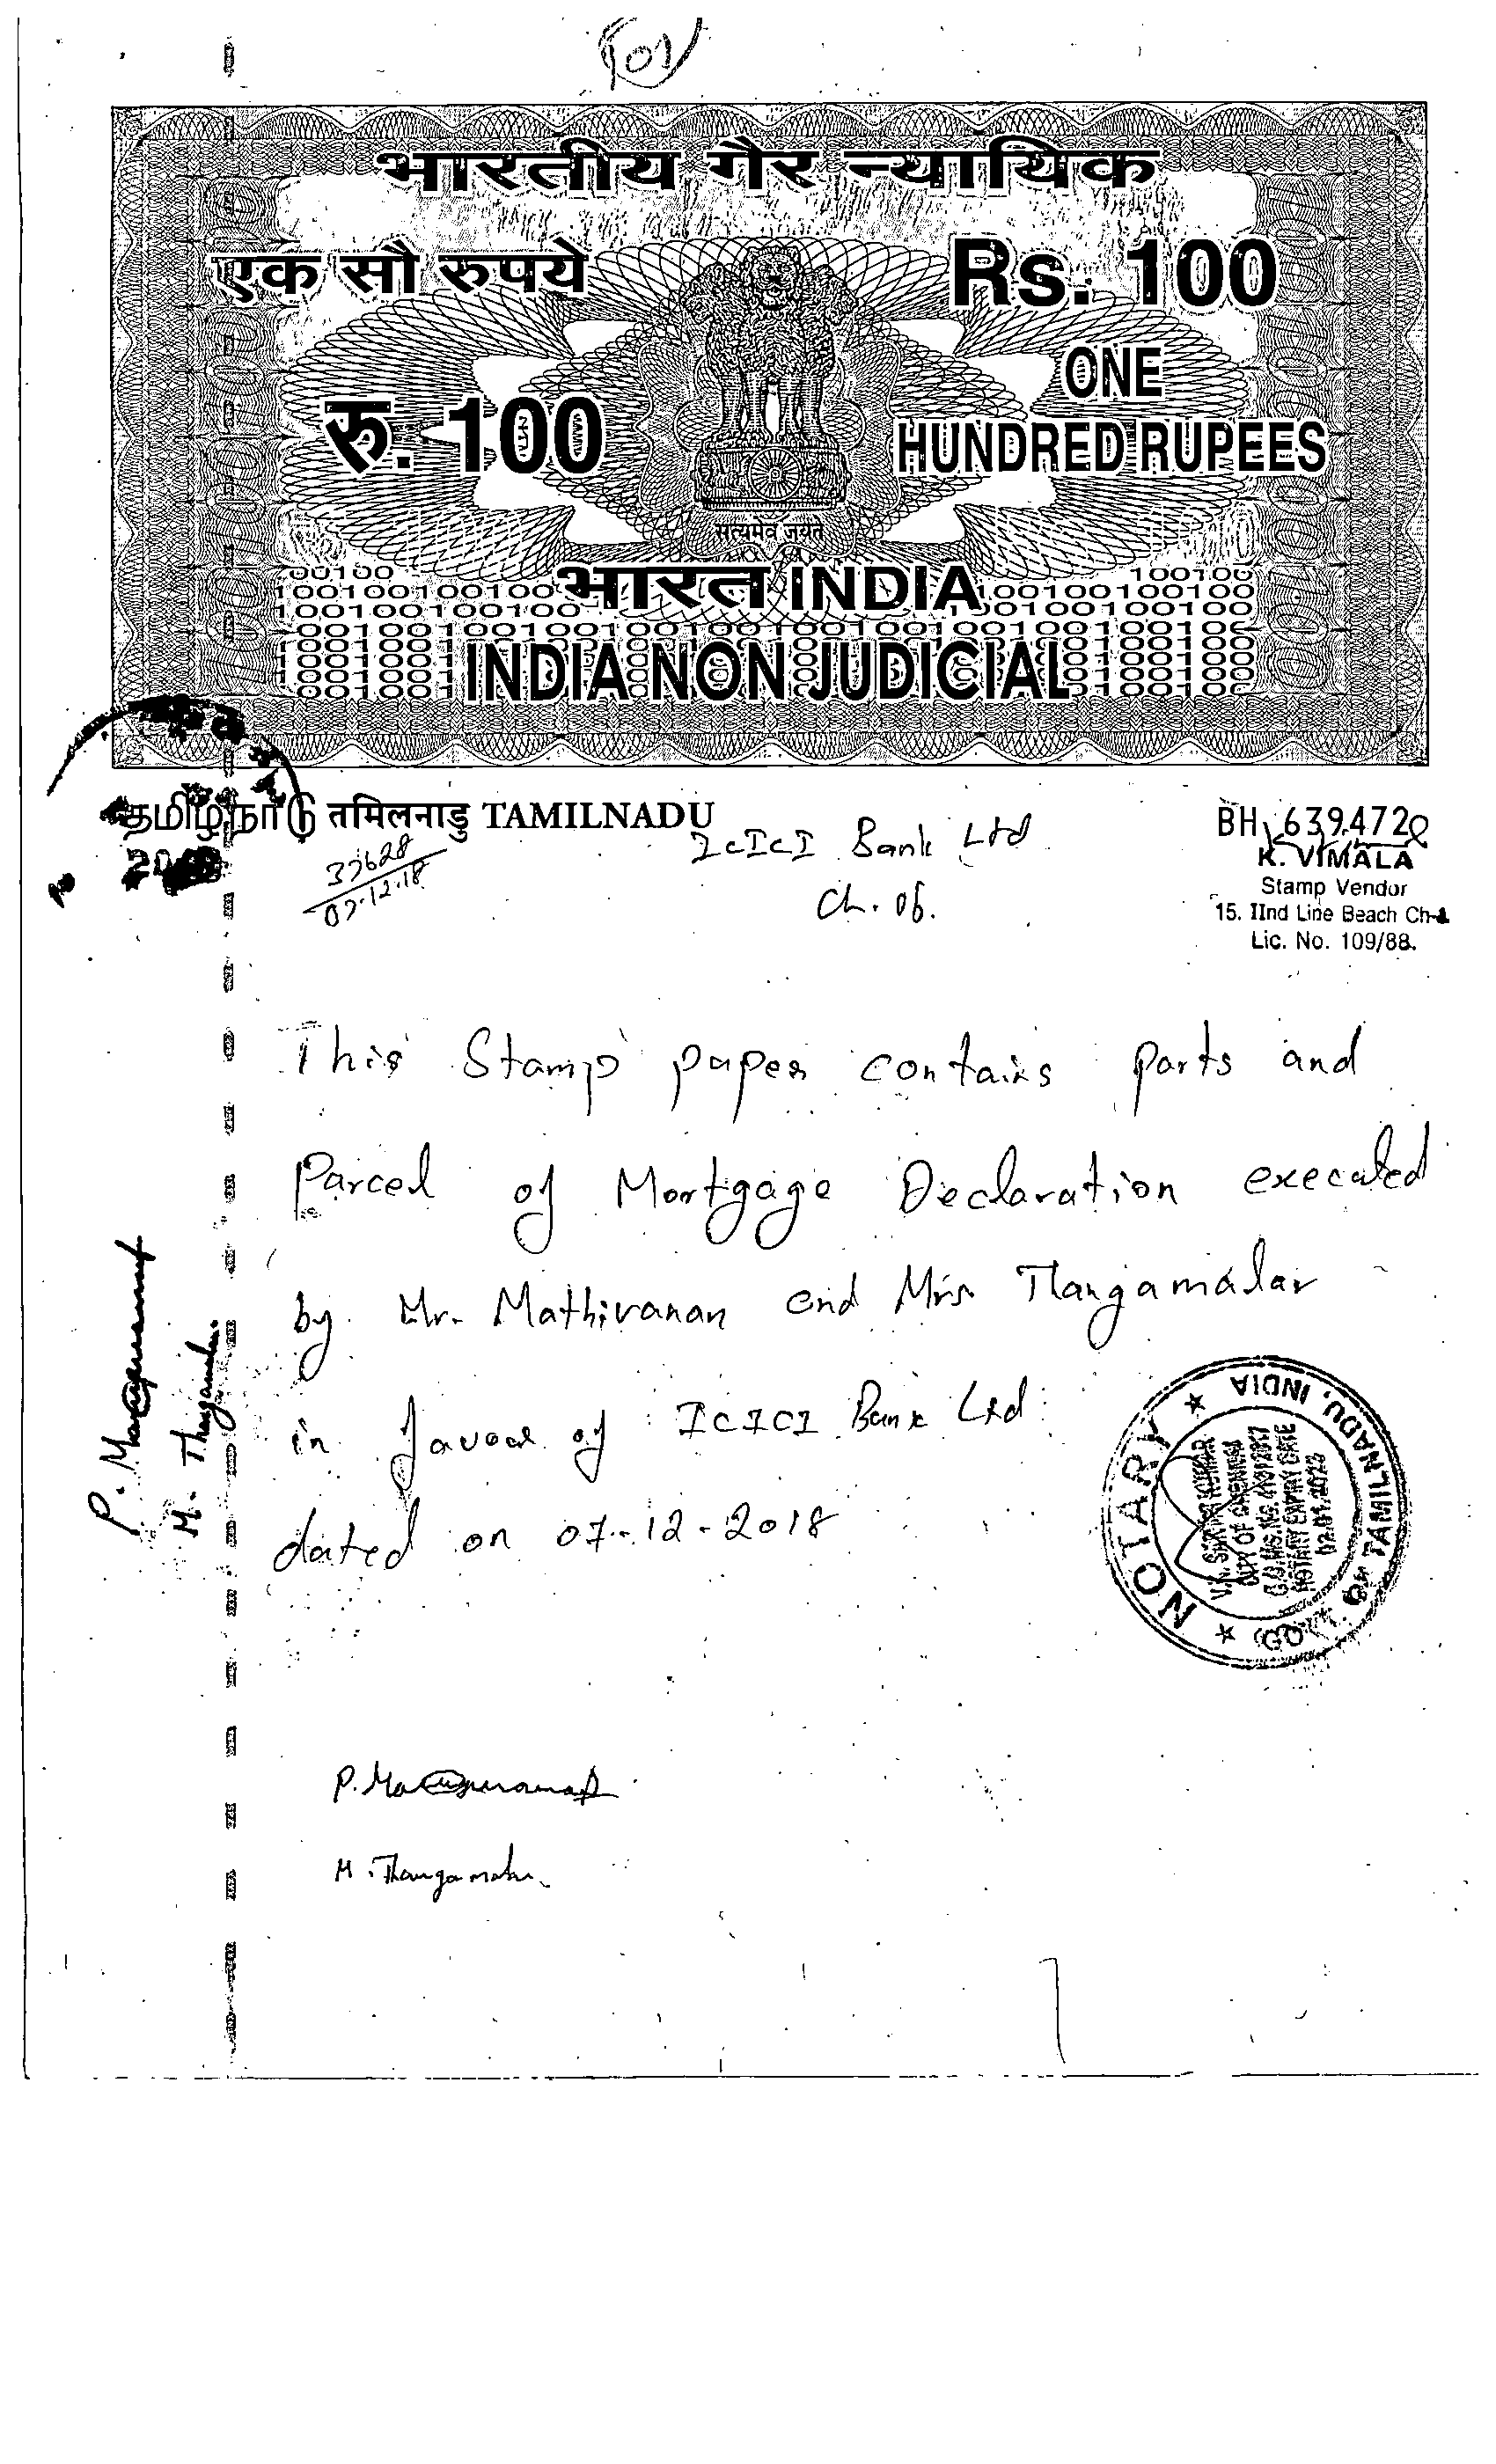 भारतीय गैर न्यायिक
एक सौ रुपये
Rs. 100
रु. 100
ONE
HUNDRED RUPEES
सत्यमेव जयते
भारत INDIA
INDIA NON JUDICIAL
தமிழ்நாடு तमिलनाडु TAMILNADU
BH 639472
ICICI Bank Ltd
Ch. 06.
07.12.18
K. VIMALA
Stamp Vendor
15. IInd Line Beach Ch-1
Lic. No. 109/88.
This Stamp paper contains parts and
Parcel of Mortgage Declaration executed
by Mr. Mathivanan and Mrs Thangamalar
in favour of ICICI Bank Ltd
dated on 07-12-2018
NOTARY
TAMILNADU, INDIA
CITY OF CHENNAI
NOTARY EXPIRY DATE
M. Thangamalar
M. Thangamalar